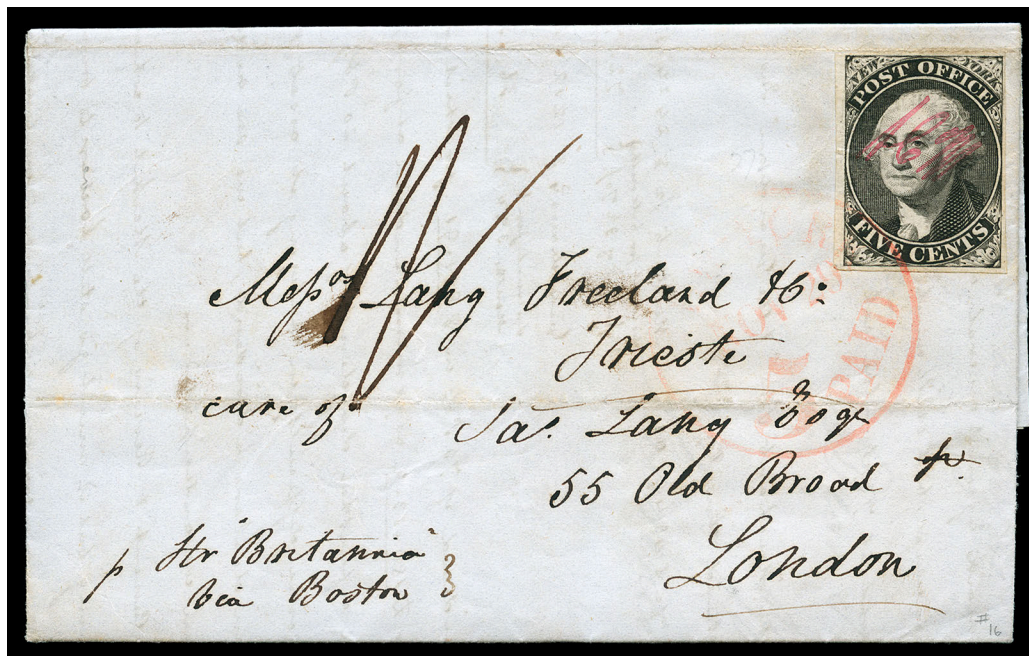 NEW YORK
POST OFFICE
FIVE CENTS
NOV 29
5
PAID
Messrs Lang Freeland & Co.
Trieste
care of
Jas. Lang Esqr
55 Old Broad St.
London
p Str "Britannia"
via Boston
#16